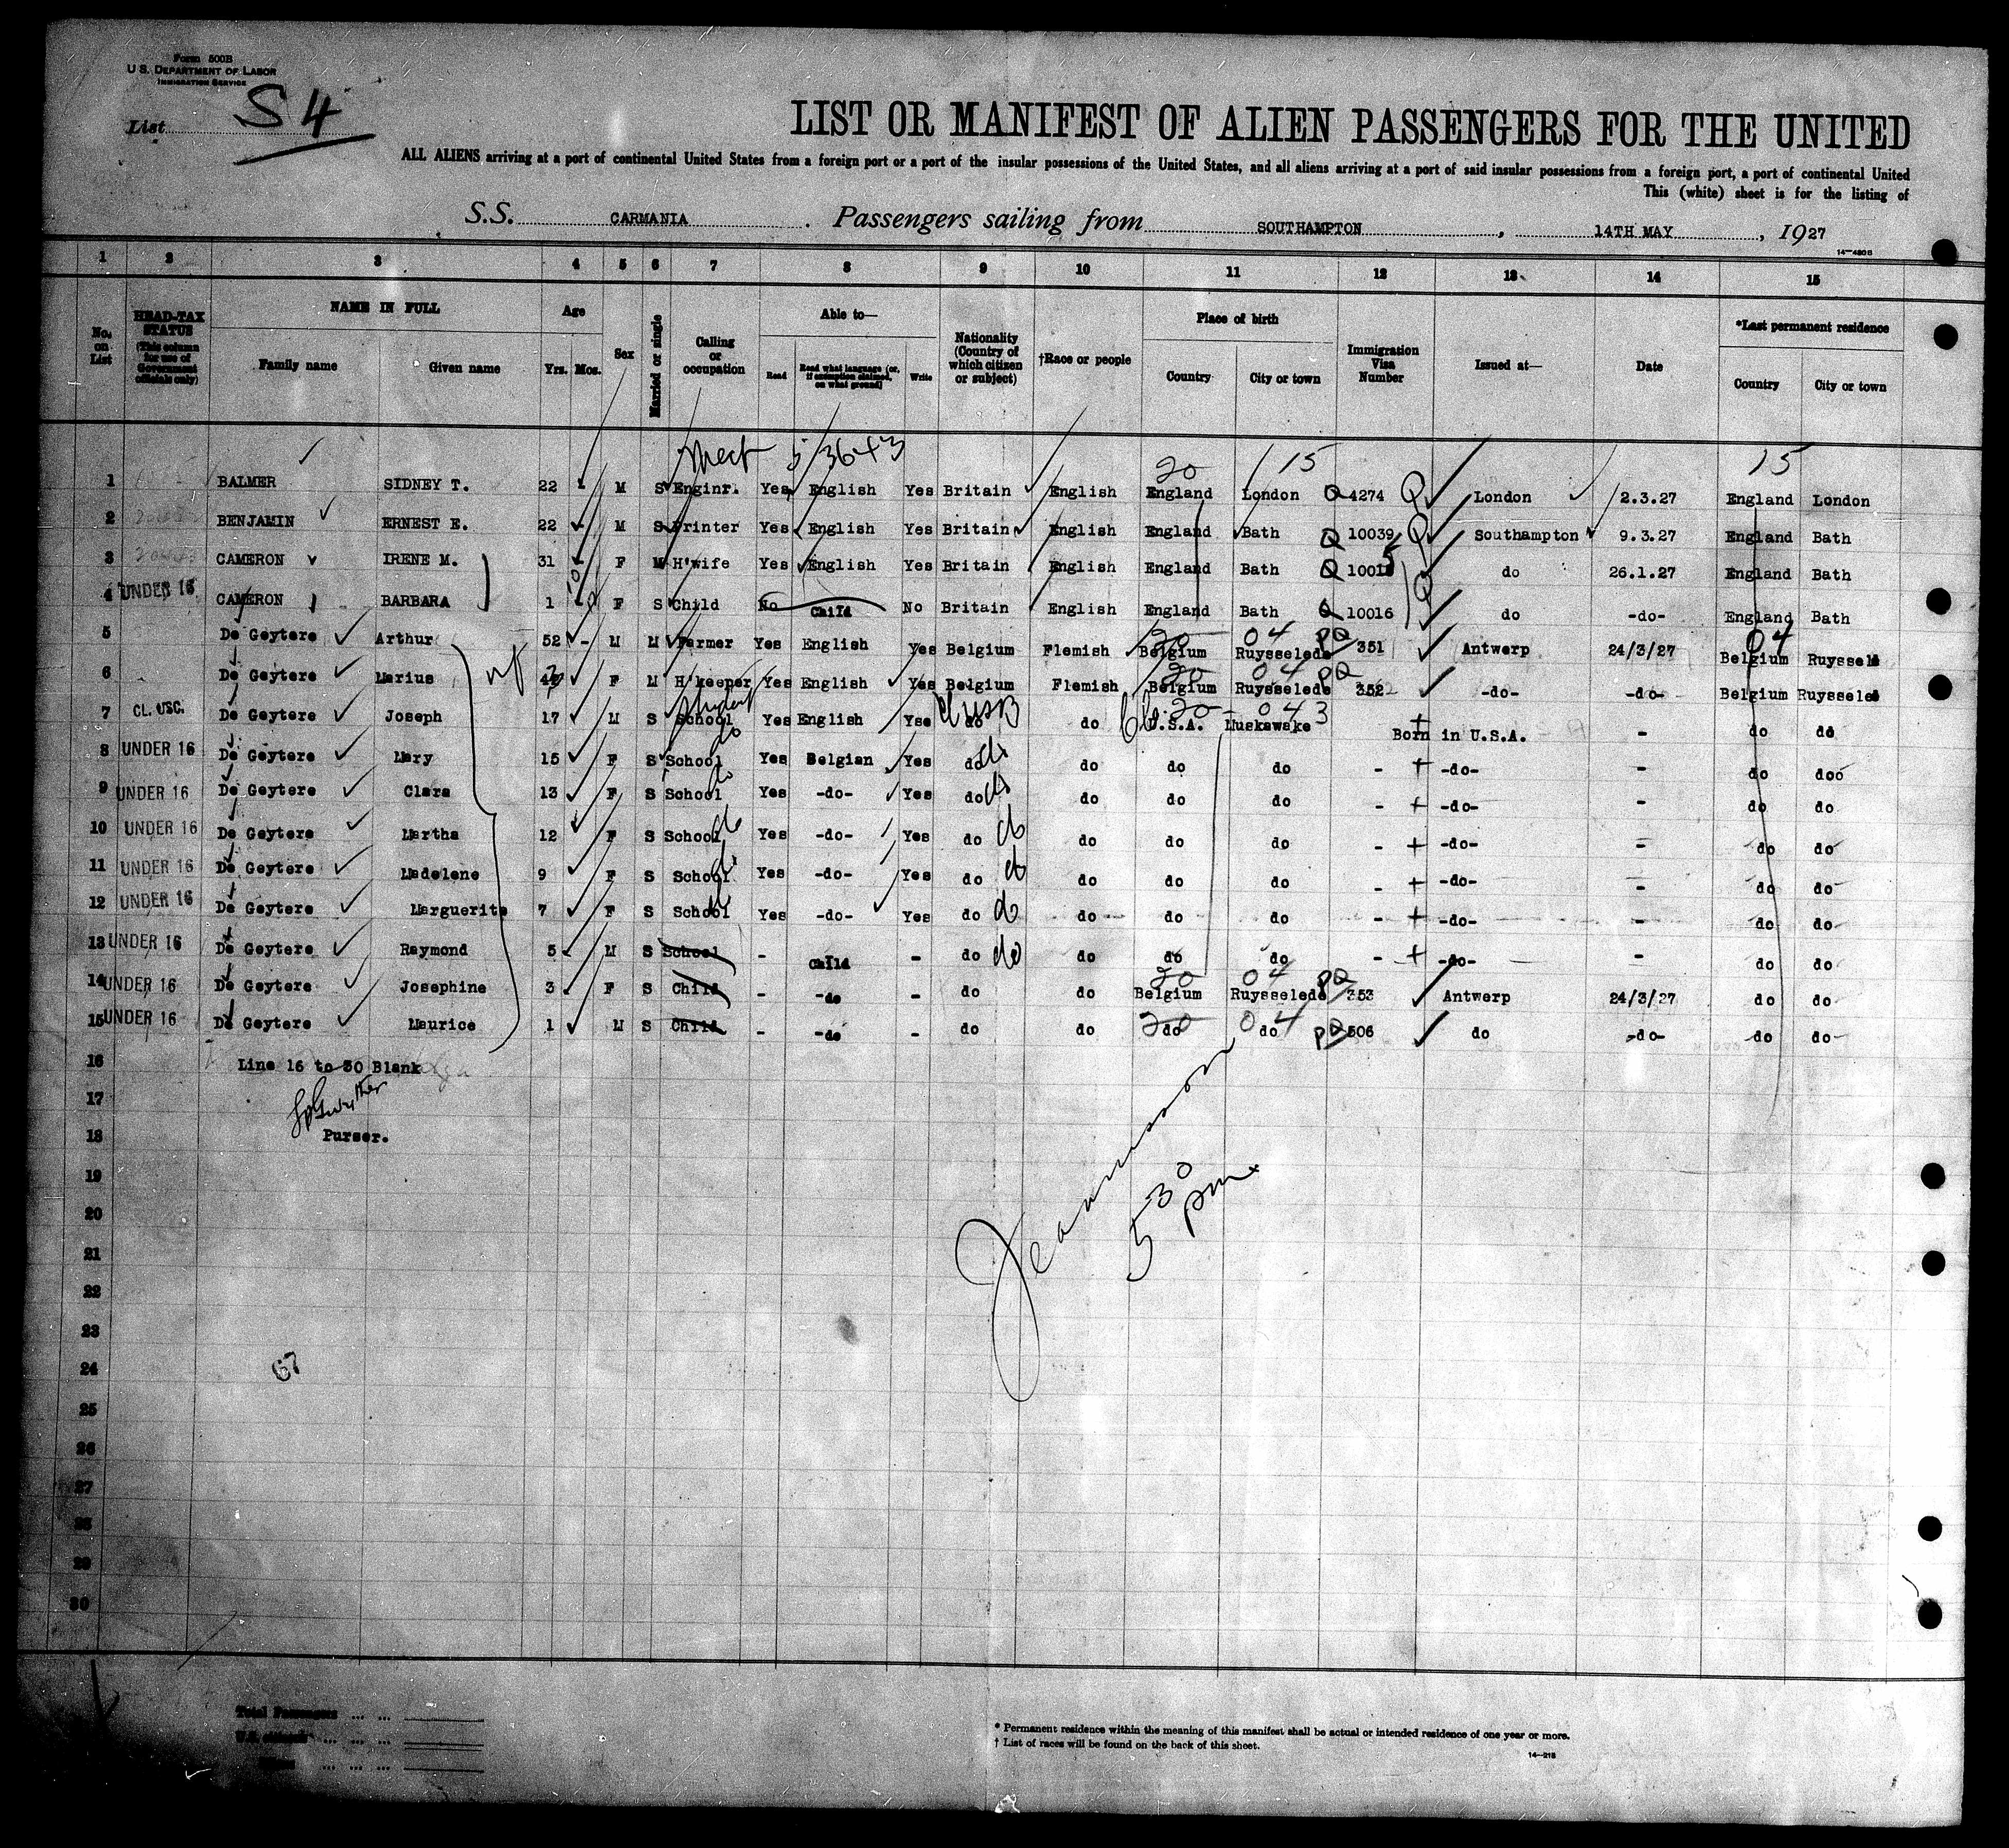 Form 500B
U. S. DEPARTMENT OF LABOR
IMMIGRATION SERVICE
List S 4
LIST OR MANIFEST OF ALIEN PASSENGERS FOR THE UNITED
ALL ALIENS arriving at a port of continental United States from a foreign port or a port of the insular possessions of the United States, and all aliens arriving at a port of said insular possessions from a foreign port, a port of continental United
This (white) sheet is for the listing of
S.S. CARMANIA . Passengers sailing from SOUTHAMPTON , 14TH MAY , 1927
14—4808
1 2 3 4 5 6 7 8 9 10 11 12 13 14 15
No. on List
HEAD-TAX STATUS (This column for use of Government officials only)
NAME IN FULL Family name Given name
Age Yrs. Mos.
Sex
Married or single
Calling or occupation
Able to— Read Read what language (or, if exemption claimed, on what ground) Write
Nationality (Country of which citizen or subject)
†Race or people
Place of birth Country City or town
Immigration Visa Number
Issued at—
Date
*Last permanent residence Country City or town
5/3643 20 15 15
1 BALMER SIDNEY T. 22 - M S Enginr. Yes English Yes Britain English England London Q 4274 Q London 2.3.27 England London
2 BENJAMIN ERNEST E. 22 - M S Printer Yes English Yes Britain English England Bath Q 10039 Q Southampton 9.3.27 England Bath
3 CAMERON IRENE M. 31 - F M H'wife Yes English Yes Britain English England Bath Q 10015 do 26.1.27 England Bath
4 UNDER 16 CAMERON BARBARA 1 F S Child No Child No Britain English England Bath Q 10016 Q do -do- England Bath
5 De Geytere Arthur 52 - M M Farmer Yes English Yes Belgium Flemish 20 Belgium 04 Ruysselede PQ 351 Antwerp 24/3/27 04 Belgium Ruyssele
6 De Geytere Marius F M H'keeper Yes English Yes Belgium Flemish 20 Belgium 04 Ruysselede PQ 352 -do- -do- Belgium Ruyssele
7 CL. USC. De Geytere Joseph 17 M S School Student Yes English Yse do USB do 20 U.S.A. 043 Muskawake Born in U.S.A. - do do
8 UNDER 16 De Geytere Mary 15 F S School do Yes Belgian Yes do do do do do - + -do- - do doo
9 UNDER 16 De Geytere Clara 13 F S School do Yes -do- Yes do do do do do - + -do- - do do
10 UNDER 16 De Geytere Martha 12 F S School do Yes -do- Yes do do do do do - + -do- - do do
11 UNDER 16 De Geytere Madelene 9 F S School do Yes -do- Yes do do do do do - + -do- - do do
12 UNDER 16 De Geytere Marguerite 7 F S School do Yes -do- Yes do do do do do - + -do- - do do
13 UNDER 16 De Geytere Raymond 5 M S School - Child - do do do do do - + -do- - do do
14 UNDER 16 De Geytere Josephine 3 F S Child - -do - do do 20 Belgium 04 Ruysselede PQ 353 Antwerp 24/3/27 do do
15 UNDER 16 De Geytere Maurice 1 M S Child - -do - do do 20 do 04 do PQ 506 do -do- do do
16 Line 16 to 30 Blank
17
18 Purser.
19
20
21
22
23
24
25
26
27
28
29
30
5 30 pm
67
Total Passengers ... ...
U.S. citizens ... ... ...
Aliens ... ... ...
* Permanent residence within the meaning of this manifest shall be actual or intended residence of one year or more.
† List of races will be found on the back of this sheet.
14—213